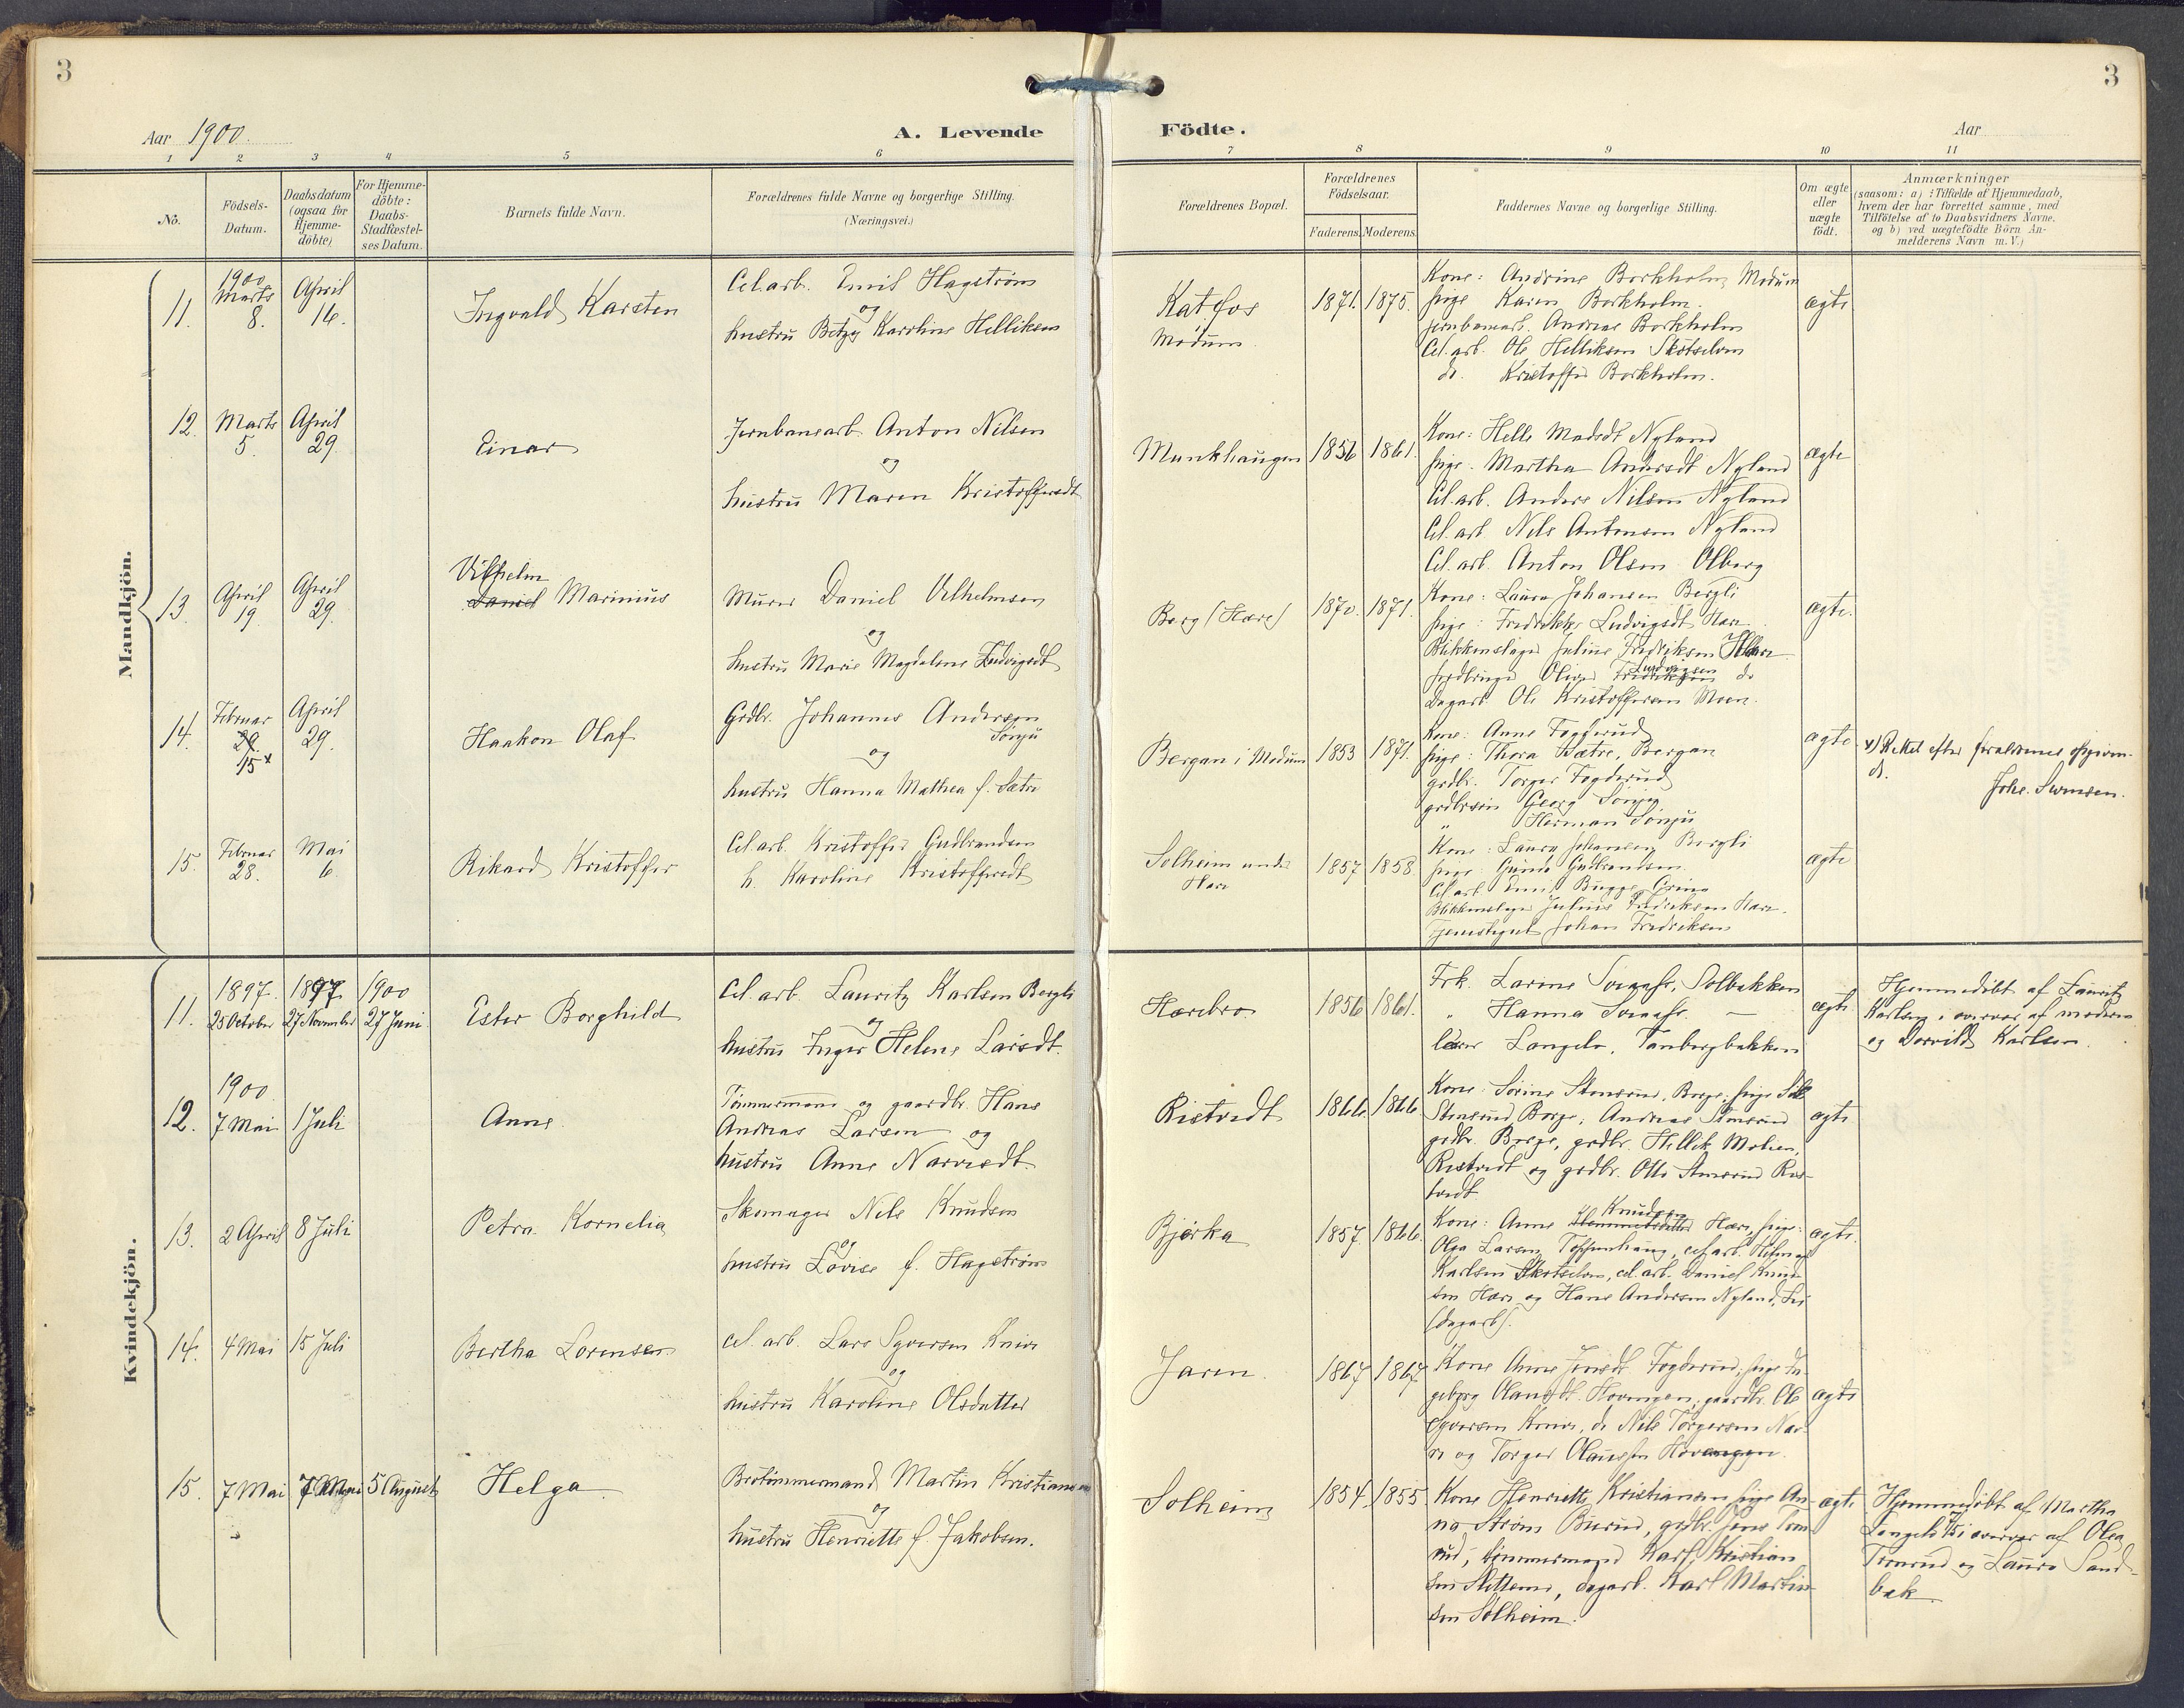 3
3
Aar 1900.
A. Levende
Födte.
Aar
1 2 3 4 5 6 7 8 9 10 11
No.
Födsels-
Datum.
Daabsdatum
(ogsaa for
Hjemme-
döbte)
For Hjemme-
döbte:
Daabs-
Stadfæstel-
ses Datum.
Barnets fulde Navn.
Forældrenes fulde Navne og borgerlige Stilling.
(Næringsvei.)
Forældrenes Bopæl.
Forældrenes
Födselsaar.
Faderens.
Moderens.
Faddernes Navne og borgerlige Stilling.
Om ægte
eller
uægte
födt.
Anmærkninger
(saasom: a) i Tilfælde af Hjemmedaab,
hvem der har forrettet samme, med
Tilföielse af to Daabsvidners Navne.
og b) ved uægtefödte Börn An-
melderens Navn m. V.)
Mandkjön.
11.
1900
Marts
8.
April
16.
Ingvald Karsten
Cel.arb. Emil Hagström
og
hustru Betzy Karoline Helliksen
Katfos
Modum.
1871. 1875.
Kone: Andrine Borkholm, Modum
pige Karen Borkholm.
jernbanearb. Andreas Borkholm
Cel.arb. Ole Helliksen Skotselven
do. Kristoffer Borkholm.
ægte
12.
Marts
5.
April
29.
Einar
Jernbanearb. Anton Nilsen
og
hustru Maren Kristoffersdt
Munkhaugen
1856 1861.
Kone: Helle Madsdt Nyland
pige. Martha Andersdt Nyland
Cel.arb. Anders Nilsen Nyland
Cel.arb. Nils Antonsen Nyland
Cel.arb. Anton Olsen Olberg
ægte
13.
April
19
April
29.
Vilhelm
Daniel Marinius
Murer Daniel Vilhelmsen
og
hustru Marie Magdalene Ludvigsdt
Borg (Hære)
1870. 1871.
Kone: Laura Johansen Bergli
pige: Fredrikke Ludvigsdt Hære
Blikkenslager Julius Fredriksen Hære
Oliver Ludvigsen do
Dagarb. Ole Kristoffersen Moen.
ægte.
14.
Februar
29.
15 x
April
29.
Haakon Olaf
Grdbr. Johannes Andersen
Sönju
og
hustru Hanna Mathea f. Sætre
Bergan i Modum
1853 1871.
Kone: Anne Foggerud
pige: Thora Sætre, Bergan
grdbr. Torger Fogderud
grdbrsön Georg Sönju
" Herman Sönju
ægte
x) Rettet efter forældrenes opgiven-
de.
Johs. Svensen.
15.
Februar
28.
Mai
6.
Rikard Kristoffer
Cel.arb. Kristoffer Gudbrandsen
h. Karoline Kristoffersdt
Solheim under
Hære
1857 1858.
Kone: Laura Johansen Bergli
pige: Gunda Gudbrandsen
Cel.arb. Emil Bugge
Blikkenslager Julius Fredriksen Hære.
Tjenestegut Johan Fredriksen
ægte
Kvindekjön.
11.
1897.
25 October
1897.
27 November
1900
27 Juni
Ester Borghild
Cel.arb. Lauritz Karlsen Bergli
og
hustru Inger Helene Larsdt.
Hærebro
1856 1861.
Frk. Larine Solbakken
" Hanna —
lærer Langelo, Tanbergbakken
ægte.
Hjemmedöbt af Lauritz
Karlsen i overvær af moderen
og Karlsen.
12.
1900
7 Mai
1 Juli
Anne.
Tömmermand og gaardbr. Hans
Andreas Larsen og
hustru Anne Narvesdt.
Ristvedt
1866. 1866
Kone: Sörine Stensrud, Borge, pige
Stensrud, Borge, Andreas Stensrud
grdbr. Borge, grdbr. Hellik Moheen,
Ristvedt og grdbr. Otto Stensrud Ris-
tvedt.
ægte
13.
2 April
8 Juli
Petra Kornelia
Skomager Nils Knudsen
og
hustru Lovise f. Hagström
Bjørka
1857. 1866.
Knudsen
Kone: Anne Hære, pige:
Olga Larsen Toppenhaug, cel.arb. Hilmar
Karlsen Skotselven, cel.arb. Daniel Knud-
sen Hære og Hans Andersen Nyland,
(dagarb).
ægte.
14.
4 Mai
15 Juli
Bertha Lorensen
Cel. arb. Lars Syversen Knive
og
hustru Karoline Olsdatter
Jaren.
1867 1867
Kone Anne Jensdt. Fogderud, pige In-
geborg Olausdt. Hovengen, gaardbr. Ole
Syversen Knive, do Nils Torgersen Nar-
ve og Torger Olaussen Hovengen.
ægte
15.
7 Mai
7 Mai
5 August
Helga
Brotömmermand Martin Kristiansen
og
hustru Henriette f. Jakobsen.
Solheim
1854. 1855
Kone Henriette Kristiansen, pige An-
na Ström Burud, grdbr. Jens Tom-
rud, tömmermand Karl Kristian-
sen Slettemo, dagarb. Karl Martin-
sen Solheim.
ægte
Hjemmedöbt af Martha
Langelo i overvær af Olea
og Laura Sand-
bæk